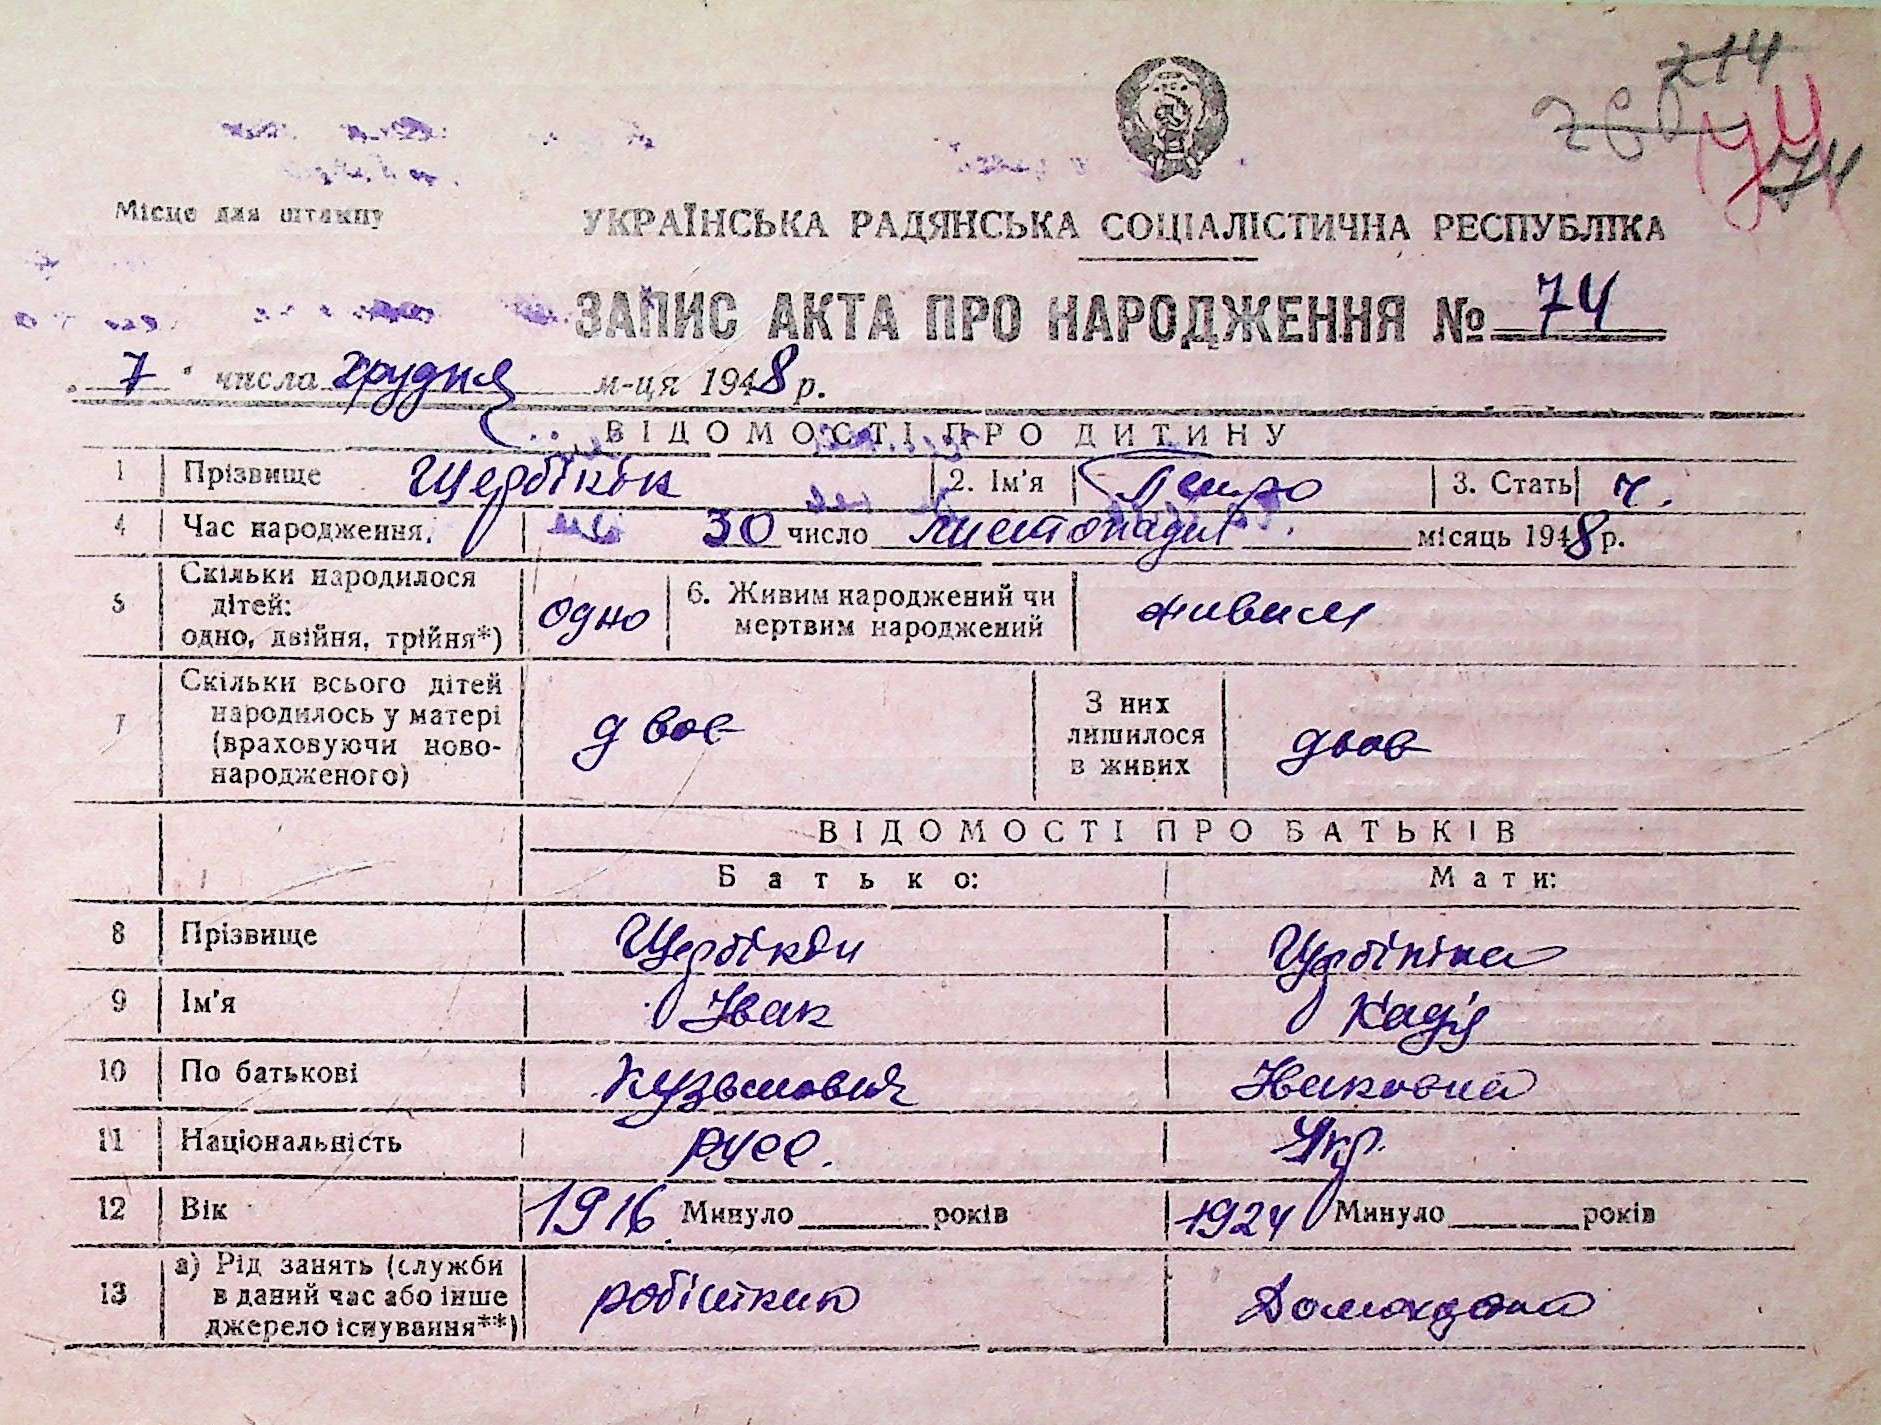 214
260
74
74
Місце для штампу
УКРАЇНСЬКА РАДЯНСЬКА СОЦІАЛІСТИЧНА РЕСПУБЛІКА
ЗАПИС АКТА ПРО НАРОДЖЕННЯ № 74
„ 7 " числа грудня м-ця 1948 р.
ВІДОМОСТІ ПРО ДИТИНУ
1 Прізвище 2. Ім'я Петро 3. Стать ч.
4 Час народження. 30 число листопада місяць 1948 р.
5 Скільки народилося
дітей:
одно, двійня, трійня*) одно 6. Живим народжений чи
мертвим народжений живим
7 Скільки всього дітей
народилось у матері
(враховуючи ново-
народженого) двоє З них
лишилося
в живих двоє
ВІДОМОСТІ ПРО БАТЬКІВ
Батько: Мати:
8 Прізвище
9 Ім'я Іван Надія
10 По батькові Кузьмович Івановна
11 Національність русс. Укр.
12 Вік 1916 Минуло років 1924 Минуло років
13 а) Рід занять (служби
в даний час або інше
джерело існування**) робітник